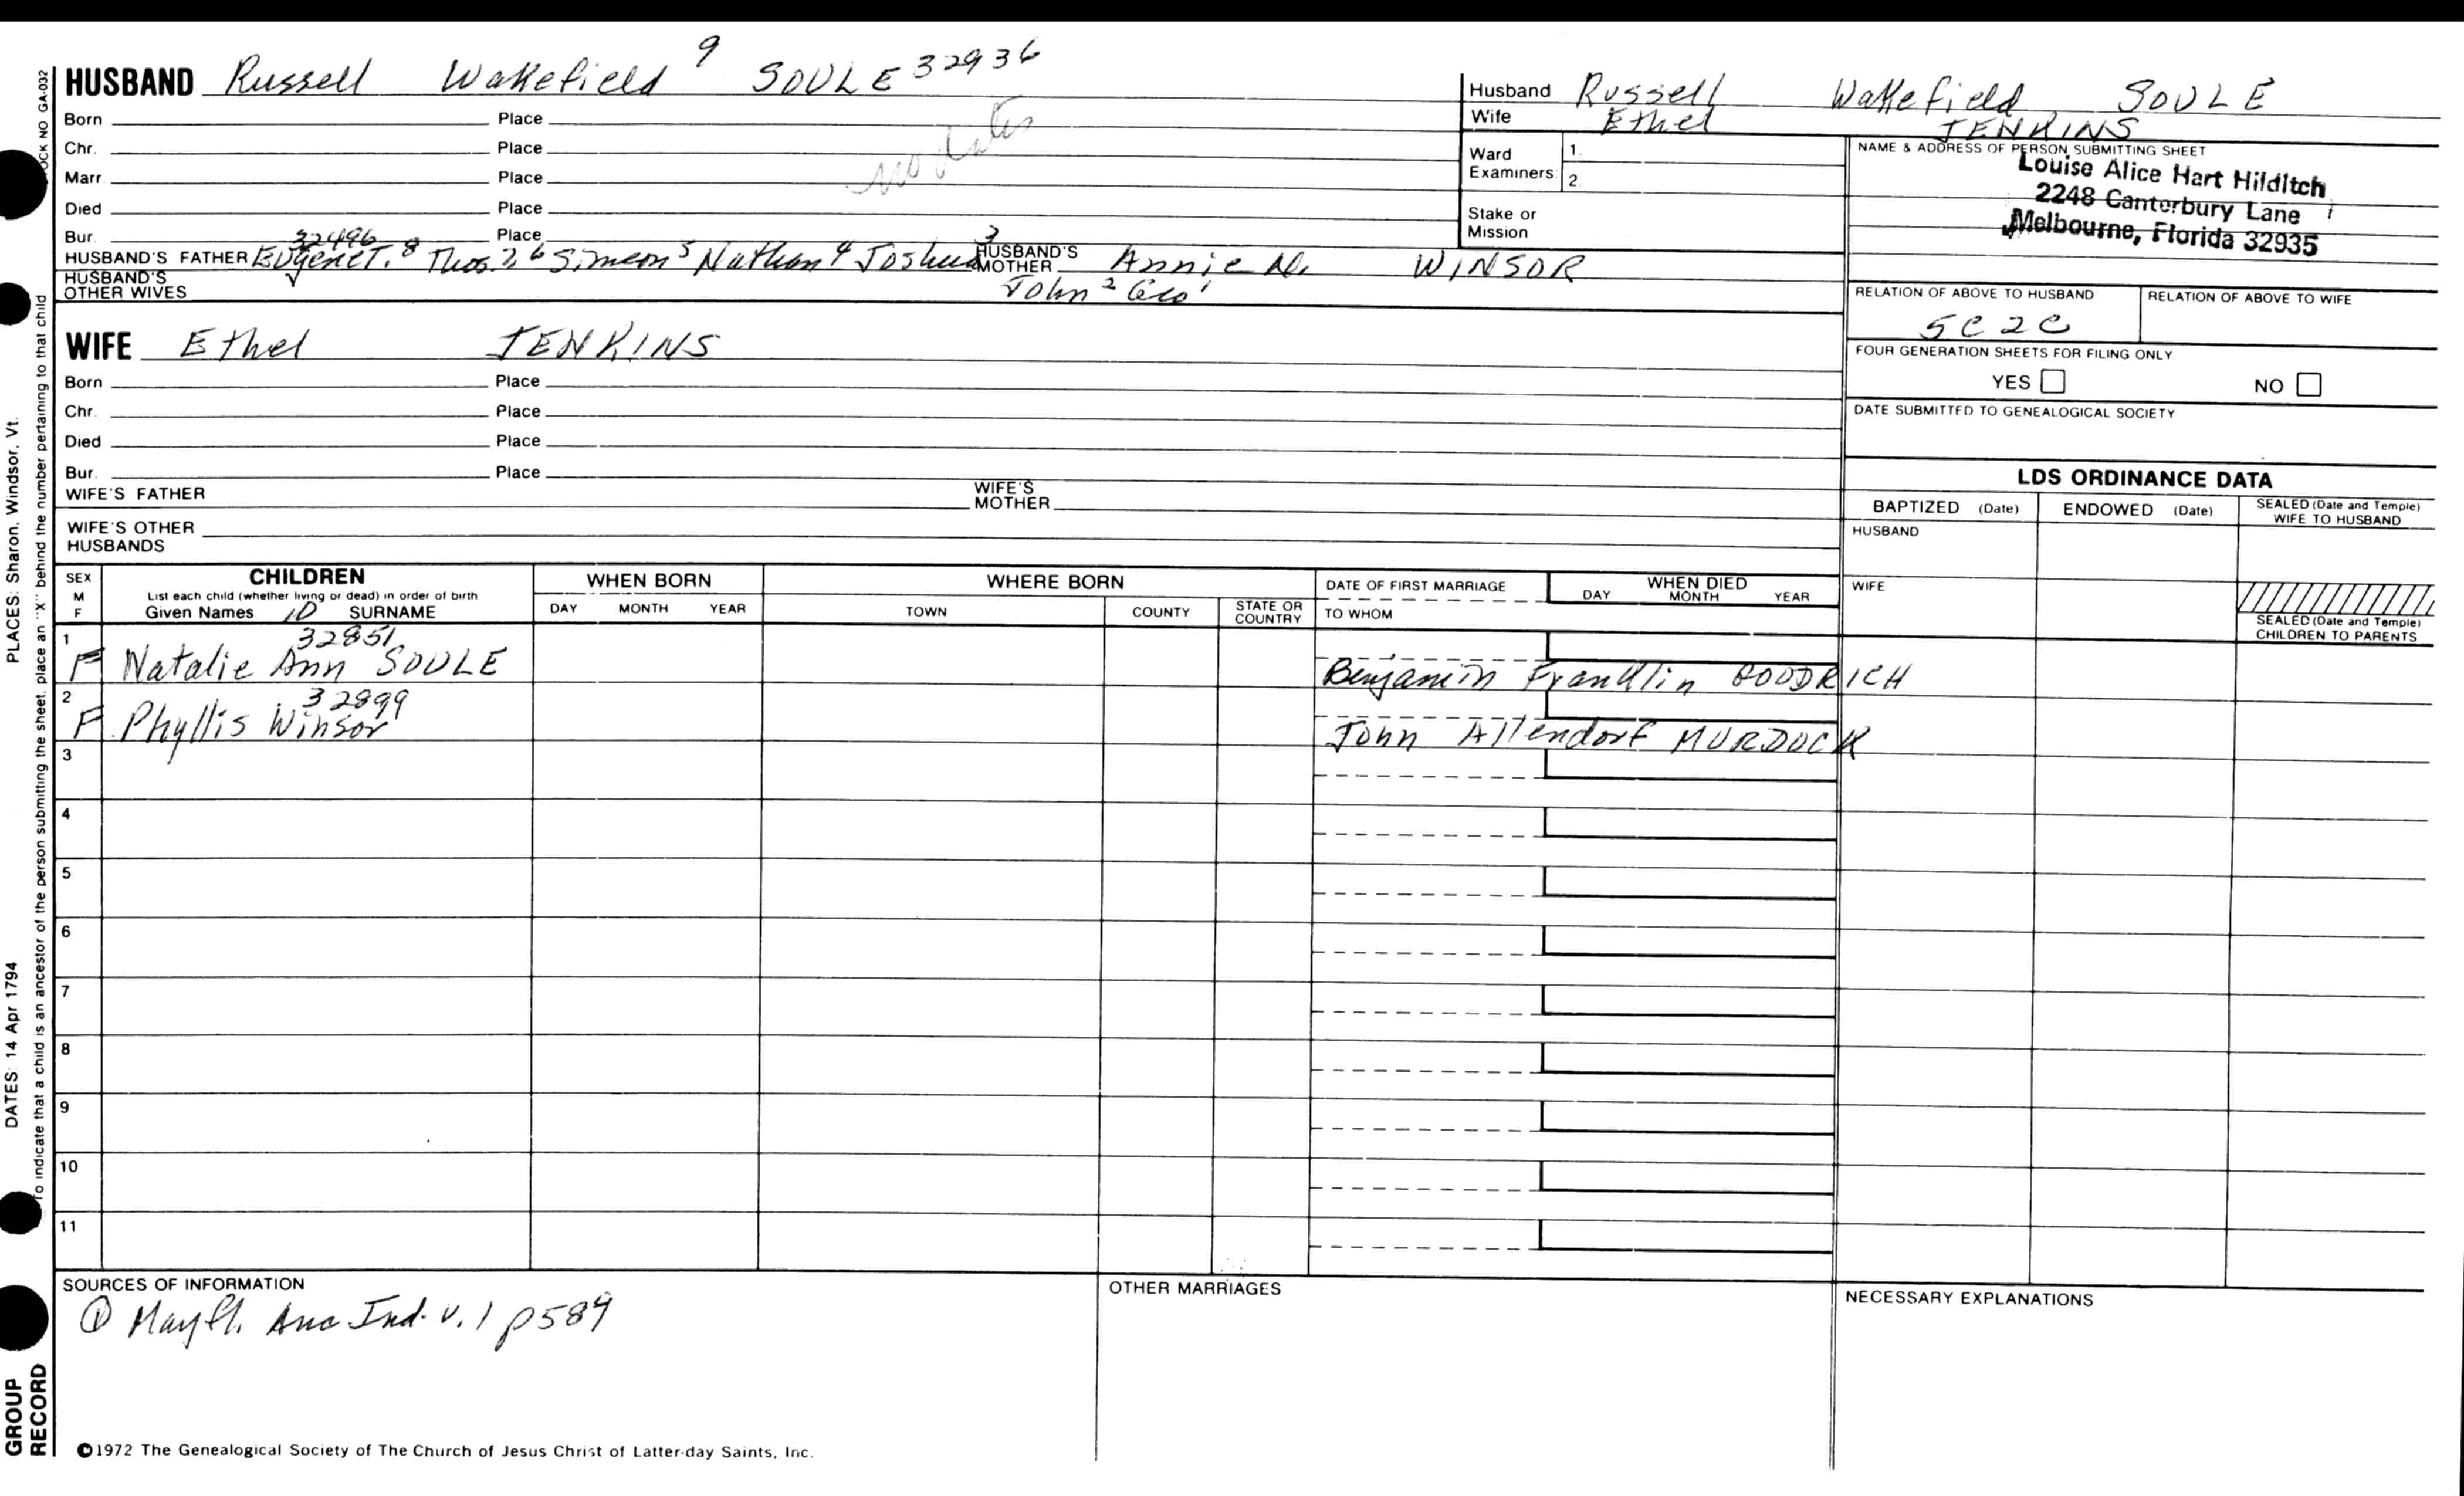 HUSBAND Russell Wakefield 9 SOULE 32936
Born Place
Chr. Place
Marr. Place
Died Place
Bur. Place
no dates
32496
HUSBAND'S FATHER Eugene T. 8 Thos. 7, 6 Simeon 5 Nathan 4 Joshua 3 HUSBAND'S MOTHER Annie M. WINSOR
HUSBAND'S OTHER WIVES John 2 Geo 1
WIFE Ethel JENKINS
Born Place
Chr. Place
Died Place
Bur. Place
WIFE'S FATHER WIFE'S MOTHER
WIFE'S OTHER HUSBANDS
Husband Russell Wakefield SOULE
Wife Ethel JENKINS
Ward Examiners: 1.
2.
Stake or Mission
NAME & ADDRESS OF PERSON SUBMITTING SHEET
Louise Alice Hart Hilditch
2248 Canterbury Lane
Melbourne, Florida 32935
RELATION OF ABOVE TO HUSBAND RELATION OF ABOVE TO WIFE
5C2C
FOUR GENERATION SHEETS FOR FILING ONLY
YES NO
DATE SUBMITTED TO GENEALOGICAL SOCIETY
LDS ORDINANCE DATA
BAPTIZED (Date) ENDOWED (Date) SEALED (Date and Temple) WIFE TO HUSBAND
HUSBAND
WIFE
SEALED (Date and Temple) CHILDREN TO PARENTS
SEX M F CHILDREN WHEN BORN WHERE BORN DATE OF FIRST MARRIAGE WHEN DIED
List each child (whether living or dead) in order of birth
Given Names 10 SURNAME DAY MONTH YEAR TOWN COUNTY STATE OR COUNTRY TO WHOM DAY MONTH YEAR
1 32851
F Natalie Ann SOULE Benjamin Franklin GOODRICH
2 32899
F Phyllis Winsor John Allendorf MURDOCK
3
4
5
6
7
8
9
10
11
SOURCES OF INFORMATION OTHER MARRIAGES NECESSARY EXPLANATIONS
① Mayfl. Anc Ind. v. 1 p589
©1972 The Genealogical Society of The Church of Jesus Christ of Latter-day Saints, Inc.
OCK NO GA-032
PLACES: Sharon, Windsor, Vt.
DATES: 14 Apr 1794
To indicate that a child is an ancestor of the person submitting the sheet, place an "X" behind the number pertaining to that child
GROUP RECORD